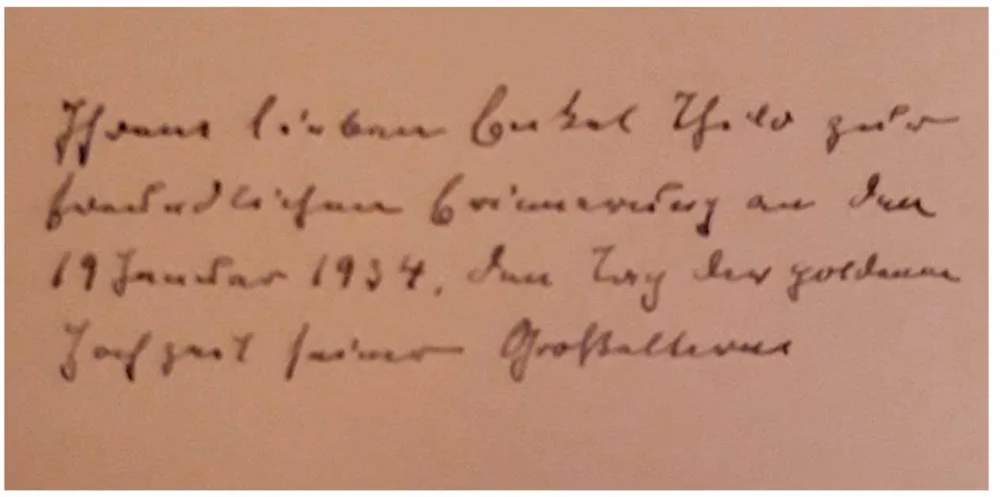 Ihrem lieben Enkel Thilo zur
freundlichen Erinnerung an den
19 Januar 1934, den Tag der goldenen
Hochzeit seiner Großeltern